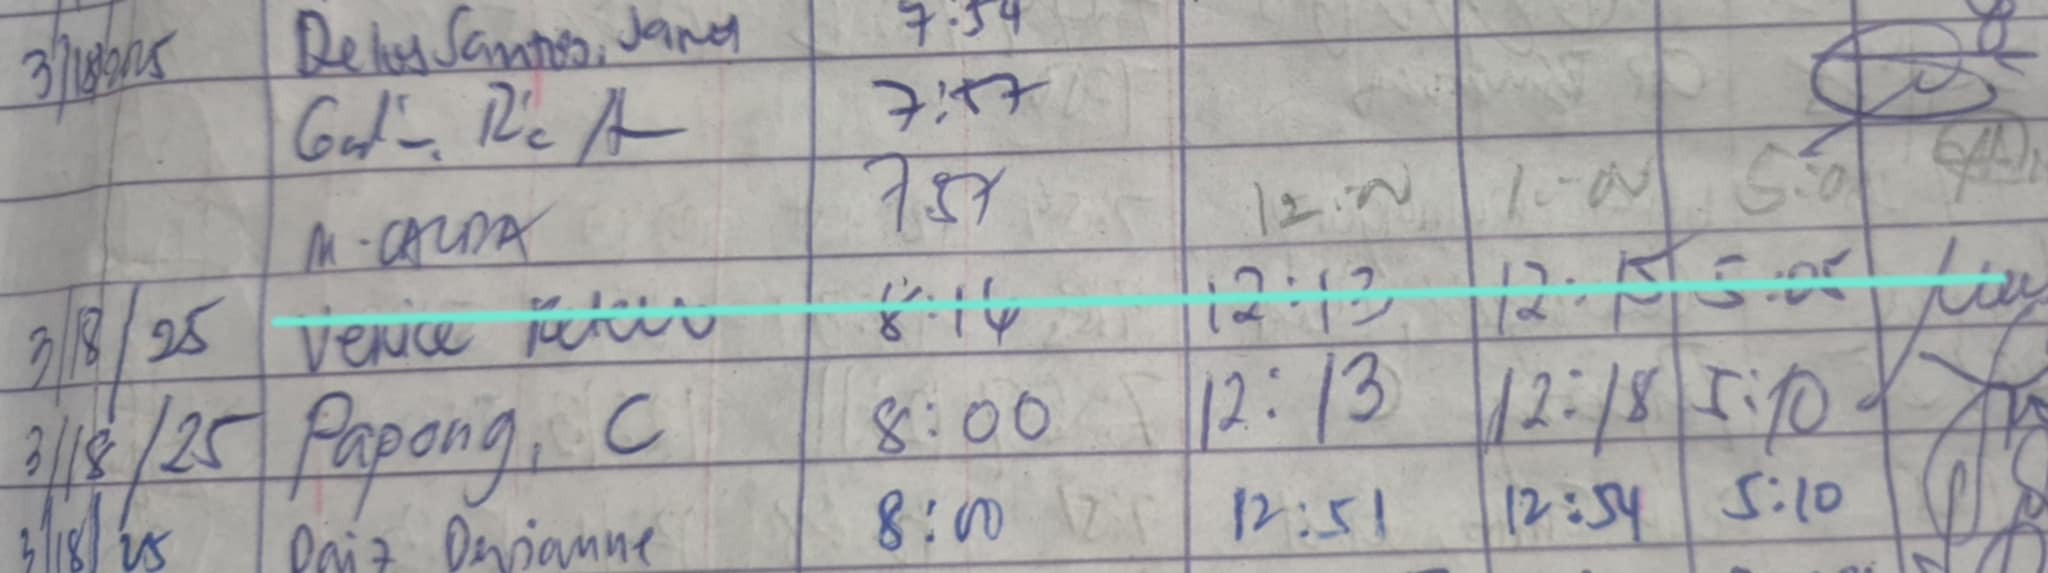 3/18/2025 Delos Santos, James 7:54
7:57
M. CALMA 7:57 12:00 1:00 5:0
3/18/25 Venice 8:14 12:13 12:15 5:05
3/18/25 Papong, C 8:00 12:13 12:18 5:10
3/18/25 8:00 12:51 12:54 5:10